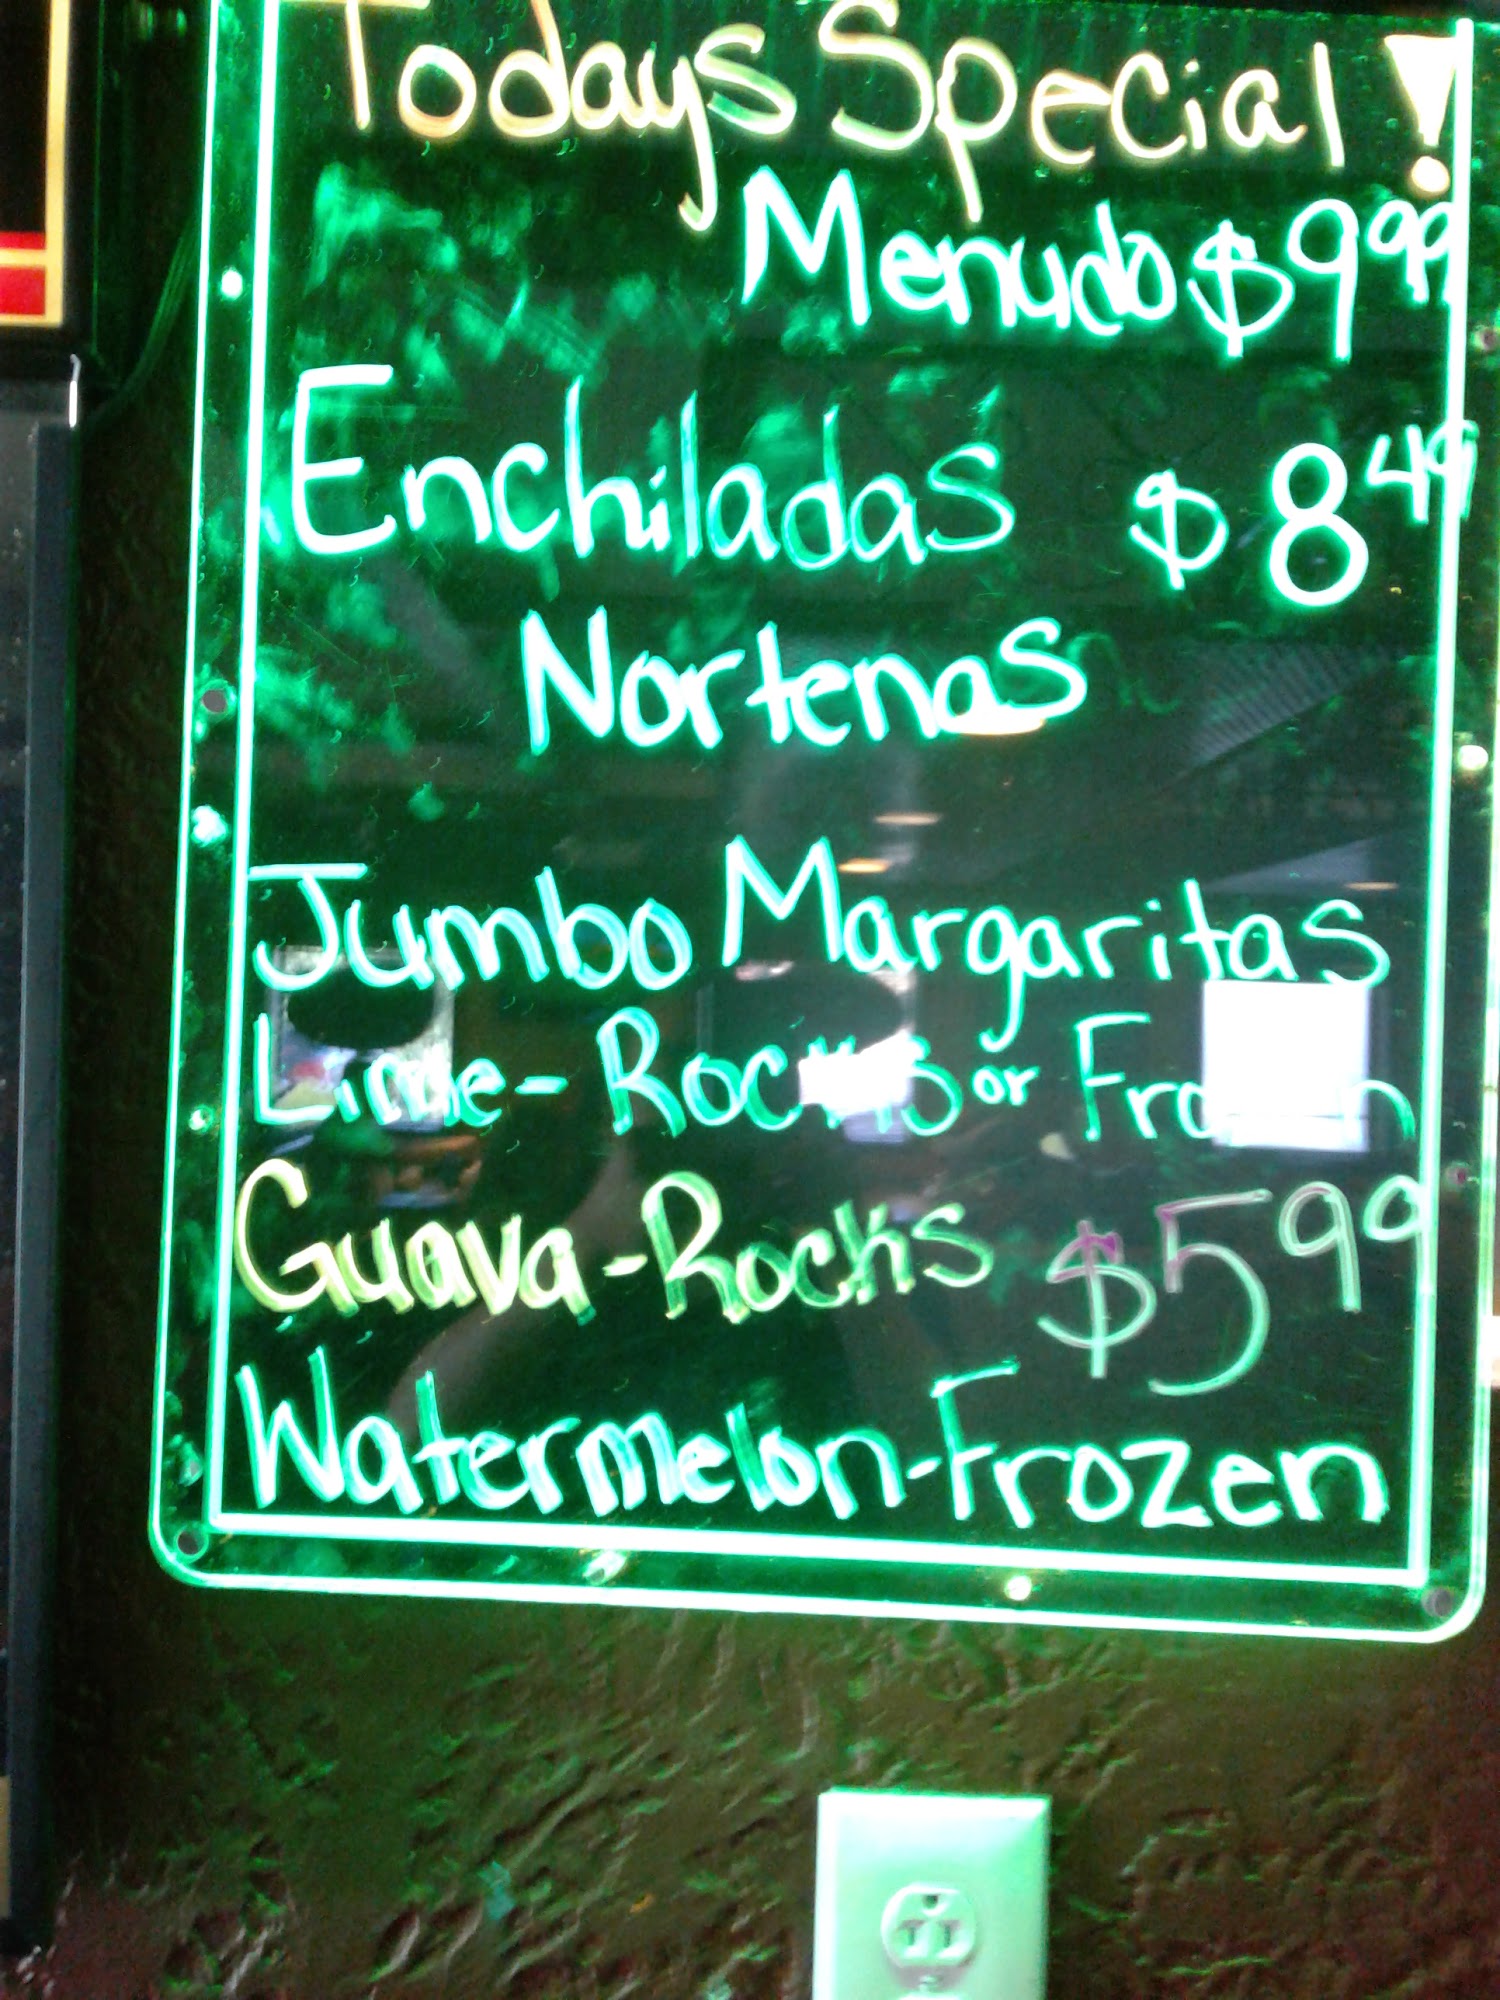 Todays Special!
Menudo $9.99
Enchiladas $8.49
Nortenas
Jumbo Margaritas
Lime- Rocks or Frozen
Guava-Rocks $5 99
Watermelon-Frozen